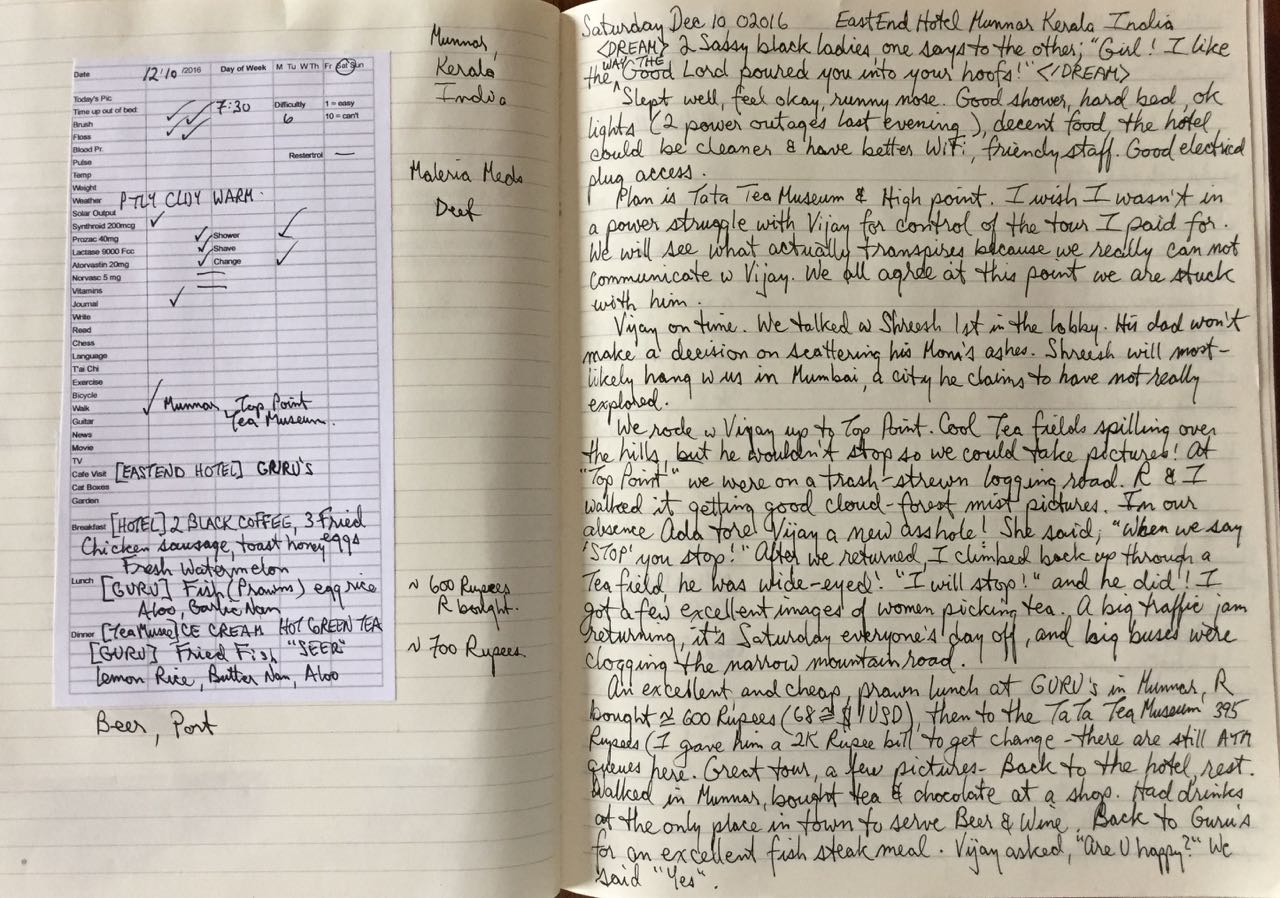 Date 12/10 /2016 Day of Week M Tu W Th Fr Sat Sun
Today's Pic
Time up out of bed: 7:30 Difficulty 1 = easy
Brush 6 10 = can't
Floss
Blood Pr.
Pulse Restertrol —
Temp
Weight
Weather PTLY CLDY WARM.
Solar Output
Synthroid 200mcg
Prozac 40mg Shower
Lactase 9000 Fcc Shave
Atorvastin 20mg Change
Norvasc 5 mg
Vitamins
Journal
Write
Read
Chess
Language
T'ai Chi
Exercise
Bicycle
Walk Munnar Top Point
Guitar Tea Museum.
News
Movie
TV
Cafe Visit [EASTEND HOTEL] GRURU'S
Cat Boxes
Garden
Breakfast [HOTEL] 2 BLACK COFFEE, 3 Fried eggs
Chicken sausage, toast honey
Fresh Watermelon
Lunch [GURU] Fish (Prawns) egg rice
Aloo, Garlic Nan
Dinner [Tea Musee] ICE CREAM HOT GREEN TEA
[GURU] Fried Fish "SEER"
Lemon Rice, Butter Nan, Aloo
Beer, Port
Munnar,
Kerala
India
Maleria Meds
Deet
~ 600 Rupees
R bought.
~ 700 Rupees.
Saturday Dec 10 02016 EastEnd Hotel Munnar Kerala India
<DREAM> 2 Sassy black ladies, one says to the other; "Girl! I like
the WAY THE Good Lord poured you into your hoofs!" </DREAM>
Slept well, feel okay, runny nose. Good shower, hard bed, ok
lights (2 power outages last evening), decent food, the hotel
could be cleaner & have better WiFi, friendly staff. Good electrical
plug access.
Plan is Tata Tea Museum & High point. I wish I wasn't in
a power struggle with Vijay for control of the tour I paid for.
We will see what actually transpires because we really can not
communicate w Vijay. We all agree at this point we are stuck
with him.
Vijay on time. We talked w Shreesh 1st in the lobby. His dad won't
make a decision on scattering his Mom's ashes. Shreesh will most-
likely hang w us in Mumbai, a city he claims to have not really
explored.
We rode w Vijay up to Top Point. Cool Tea fields spilling over
the hills, but he wouldn't stop so we could take pictures! At
"Top Point" we were on a trash-strewn logging road. R & I
walked it getting good cloud-forest mist pictures. In our
absence Ada tore Vijay a new asshole! She said; "When we say
'STOP' you stop!" After we returned, I climbed back up through a
Tea field he was wide-eyed! "I will stop!" and he did!! I
got a few excellent images of women picking tea. A big traffic jam
returning, it's Saturday everyone's day off, and big buses were
clogging the narrow mountain road.
An excellent and cheap, prawn lunch at GURU's in Munnar, R
bought ≅ 600 Rupees (68 ≅ $1 USD), then to the TaTa Tea Museum 395
Rupees (I gave him a 2K Rupee bill to get change - there are still ATM
queues here. Great tour, a few pictures- Back to the hotel, rest.
Walked in Munnar, bought tea & chocolate at a shop. Had drinks
at the only place in town to serve Beer & Wine. Back to Guru's
for an excellent fish steak meal. Vijay asked, "Are U happy?" We
said "Yes".